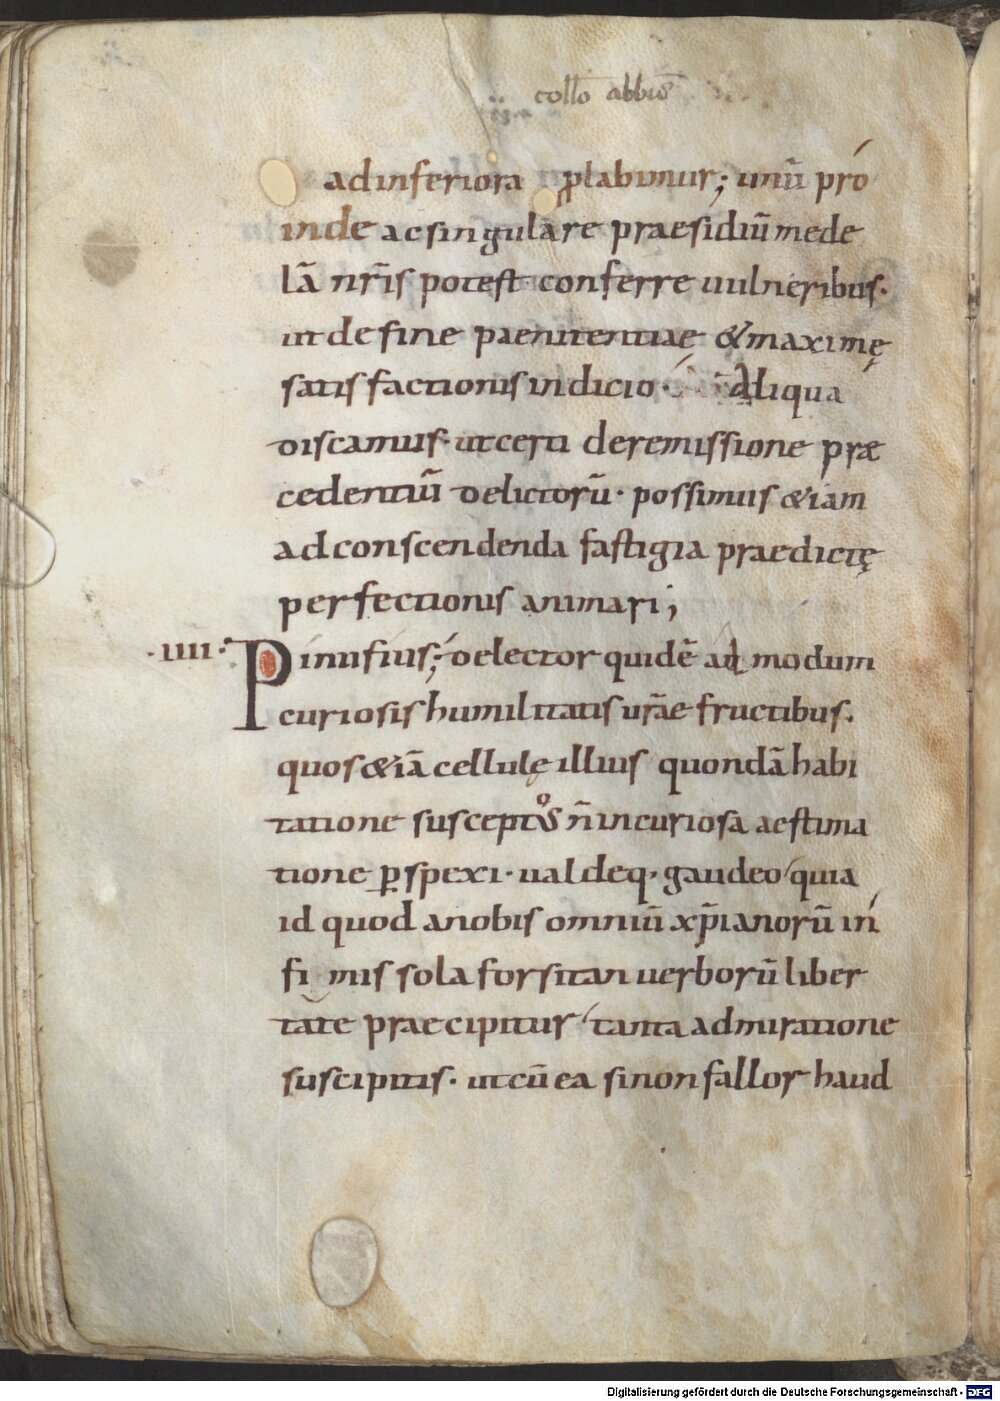 coll̄o abbīs
ad inferiora p̱labimur; unū pro
inde ac singulare praesidiū mede
lā nr̄is potest conferre uulneribus·
ut de fine paenitentiae & maximę
satisfactionis indicio· aliqua
discamus· ut certi de remissione prae
cedentiū delictorū· possimus &iam
ad conscendenda fastigia praedictę
perfectionis animari;
·IIII· Pinufius; delector quidē admodum
curiosis humilitatis ur̄ae fructibus.
quos &iā cellulę illius quondā habi
tatione susceptus n̄ incuriosa aestima
tione ꝑspexi· ualdeq· gaudeo quia
id quod a nobis omniū xp̄ianorū in
fimis sola forsitan uerborū liber
tate praecipitur tanta admiratione
suscipitis· ut cū ea si non fallor haud
Digitalisierung gefördert durch die Deutsche Forschungsgemeinschaft - DFG